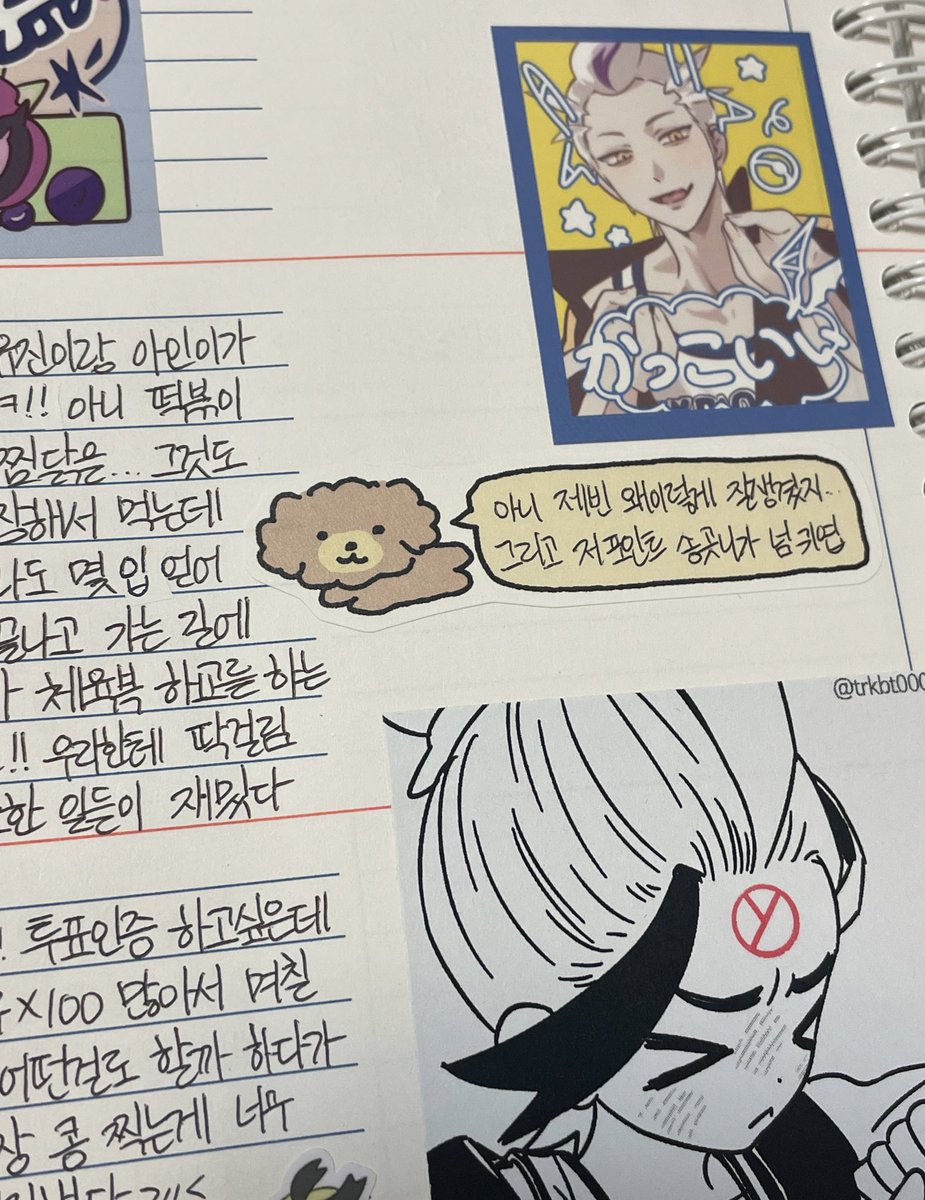 かっこいい
유진이랑 아인이가
ㅋ!! 아니 떡볶이
찜닭은... 그것도
잘해서 먹는데
나도 몇 입 얻어
끝나고 가는 길에
체육복 하교를 하는
!! 우리한테 딱걸림
한 일들이 재밌다
아니 제빈 왜이렇게 잘생겼지..
그리고 저 포인트 송곳니가 넘 귀엽
@trkbt000
! 투표인증 하고싶은데
X100 많아서 며칠
어떤걸로 할까 하다가
콩 찍는게 너무